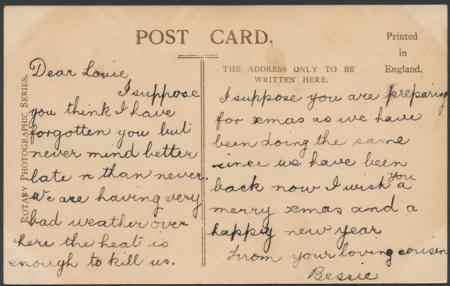 POST CARD.
Printed
in
England.
THE ADDRESS ONLY TO BE
WRITTEN HERE.
ROTARY PHOTOGRAPHIC SERIES.
Dear Louie
I suppose
you think I have
forgotten you but
never mind better
late n than never.
We are having very
bad weather over
here the heat is
enough to kill us.
I suppose you are preparing
for xmas as we have
been doing the same
since we have been
back now I wish you a
merry xmas and a
happy new year
From your loving cousin
Bessie